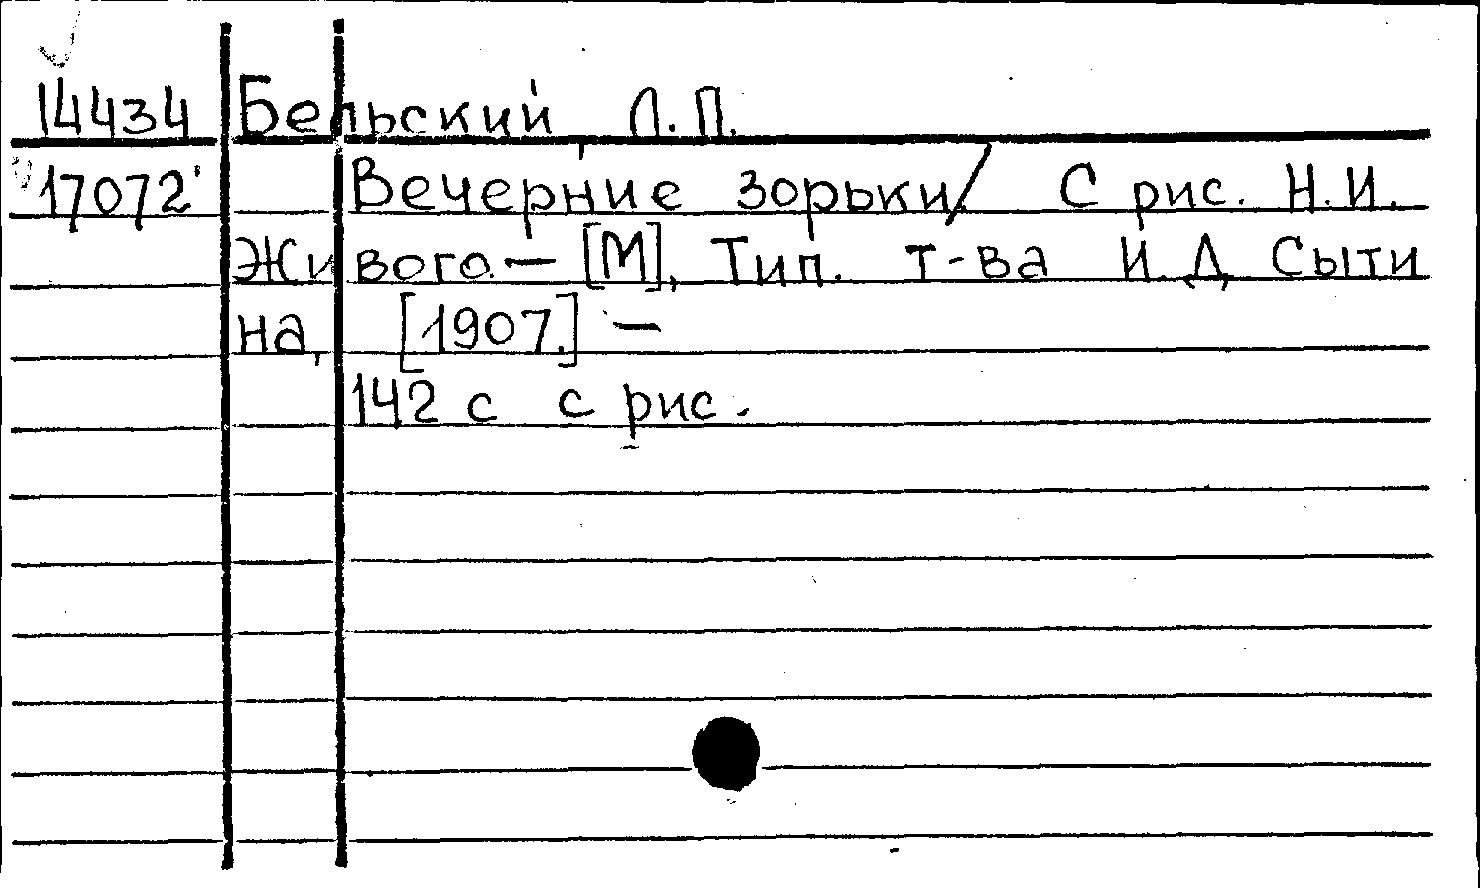 14434 Бельский Л. П.
17072 Вечерние зорьки/ С рис. Н. И.
Живого. — [М], Тип. т-ва И. Д Сыти
на, [1907.] —
142 с с рис.